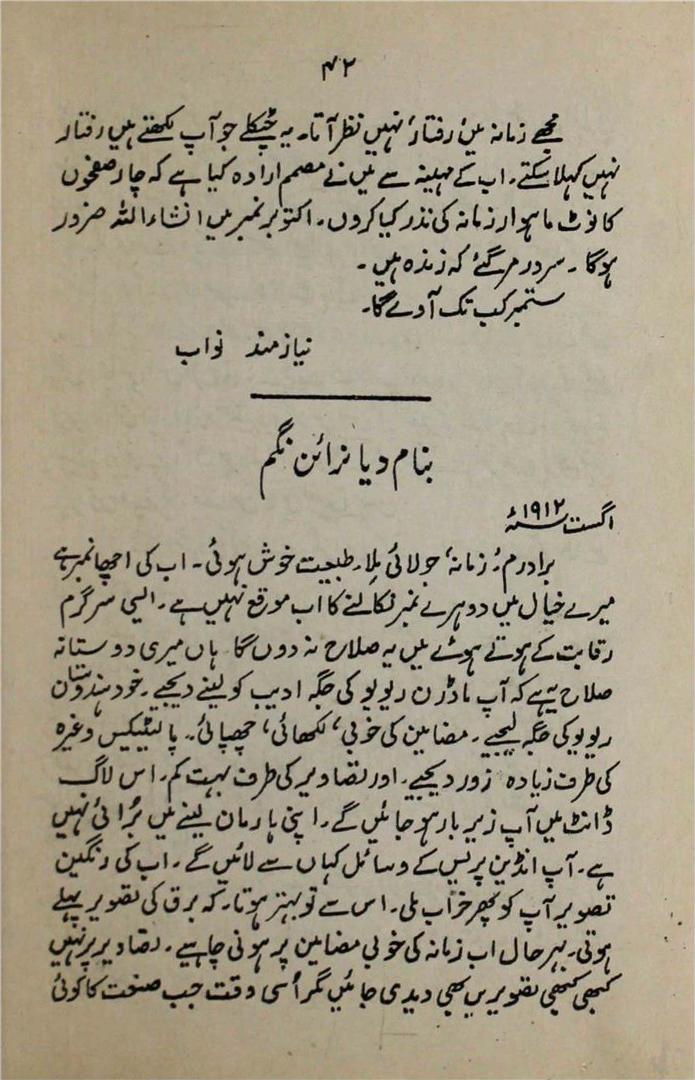 ۴۲
مجھے زمانہ میں ’رفتار‘ نہیں نظر آتا۔ یہ چٹکلے جو آپ لکھتے ہیں رفتار
نہیں کہلا سکتے۔ اب کے مہینہ سے میں نے مصمم ارادہ کیا ہے کہ چار صفحوں
کا نوٹ ماہوار زمانہ کی نذر کیا کروں۔ اکتوبر نمبر میں انشاء اللہ ضرور
ہوگا۔ سرور مر گئے کہ زندہ ہیں۔
ستمبر کب تک آوے گا۔
نیازمند نواب
بنام دیا نرائن نگم
اگست ۱۹۱۲ء
برادرم، ’زمانہ‘ جولائی ملا۔ طبیعت خوش ہوئی۔ اب کی اچھا نمبر ہے
میرے خیال میں دوہرے نمبر نکالنے کا اب موقع نہیں ہے۔ ایسی سرگرم
رقابت کے ہوتے ہوئے میں یہ صلاح نہ دوں گا ہاں میری دوستانہ
صلاح یہ ہے کہ آپ ماڈرن ریویو کی جگہ ادیب کو لینے دیجیے۔ خود ہندوستان
ریویو کی جگہ لیجیے۔ مضامین کی خوبی، لکھائی، چھپائی۔ پالیٹیکس وغیرہ
کی طرف زیادہ زور دیجیے۔ اور تصاویر کی طرف بہت کم۔ اس لاگ
ڈانٹ میں آپ زیر بار ہو جائیں گے۔ اپنی ہار مان لینے میں بُرائی نہیں
ہے۔ آپ انڈین پریس کے وسائل کہاں سے لائیں گے۔ اب کی رنگین
تصویر آپ کو پھر خراب ملی۔ اس سے تو بہتر ہوتا۔ کہ برق کی تصویر پہلے
ہوتی۔ بہر حال اب زمانہ کی خوبی مضامین پر ہونی چاہیے۔ تصاویر پر نہیں
کبھی کبھی تصویریں بھی دیدی جائیں مگر اُسی وقت جب صنعت کا کوئی